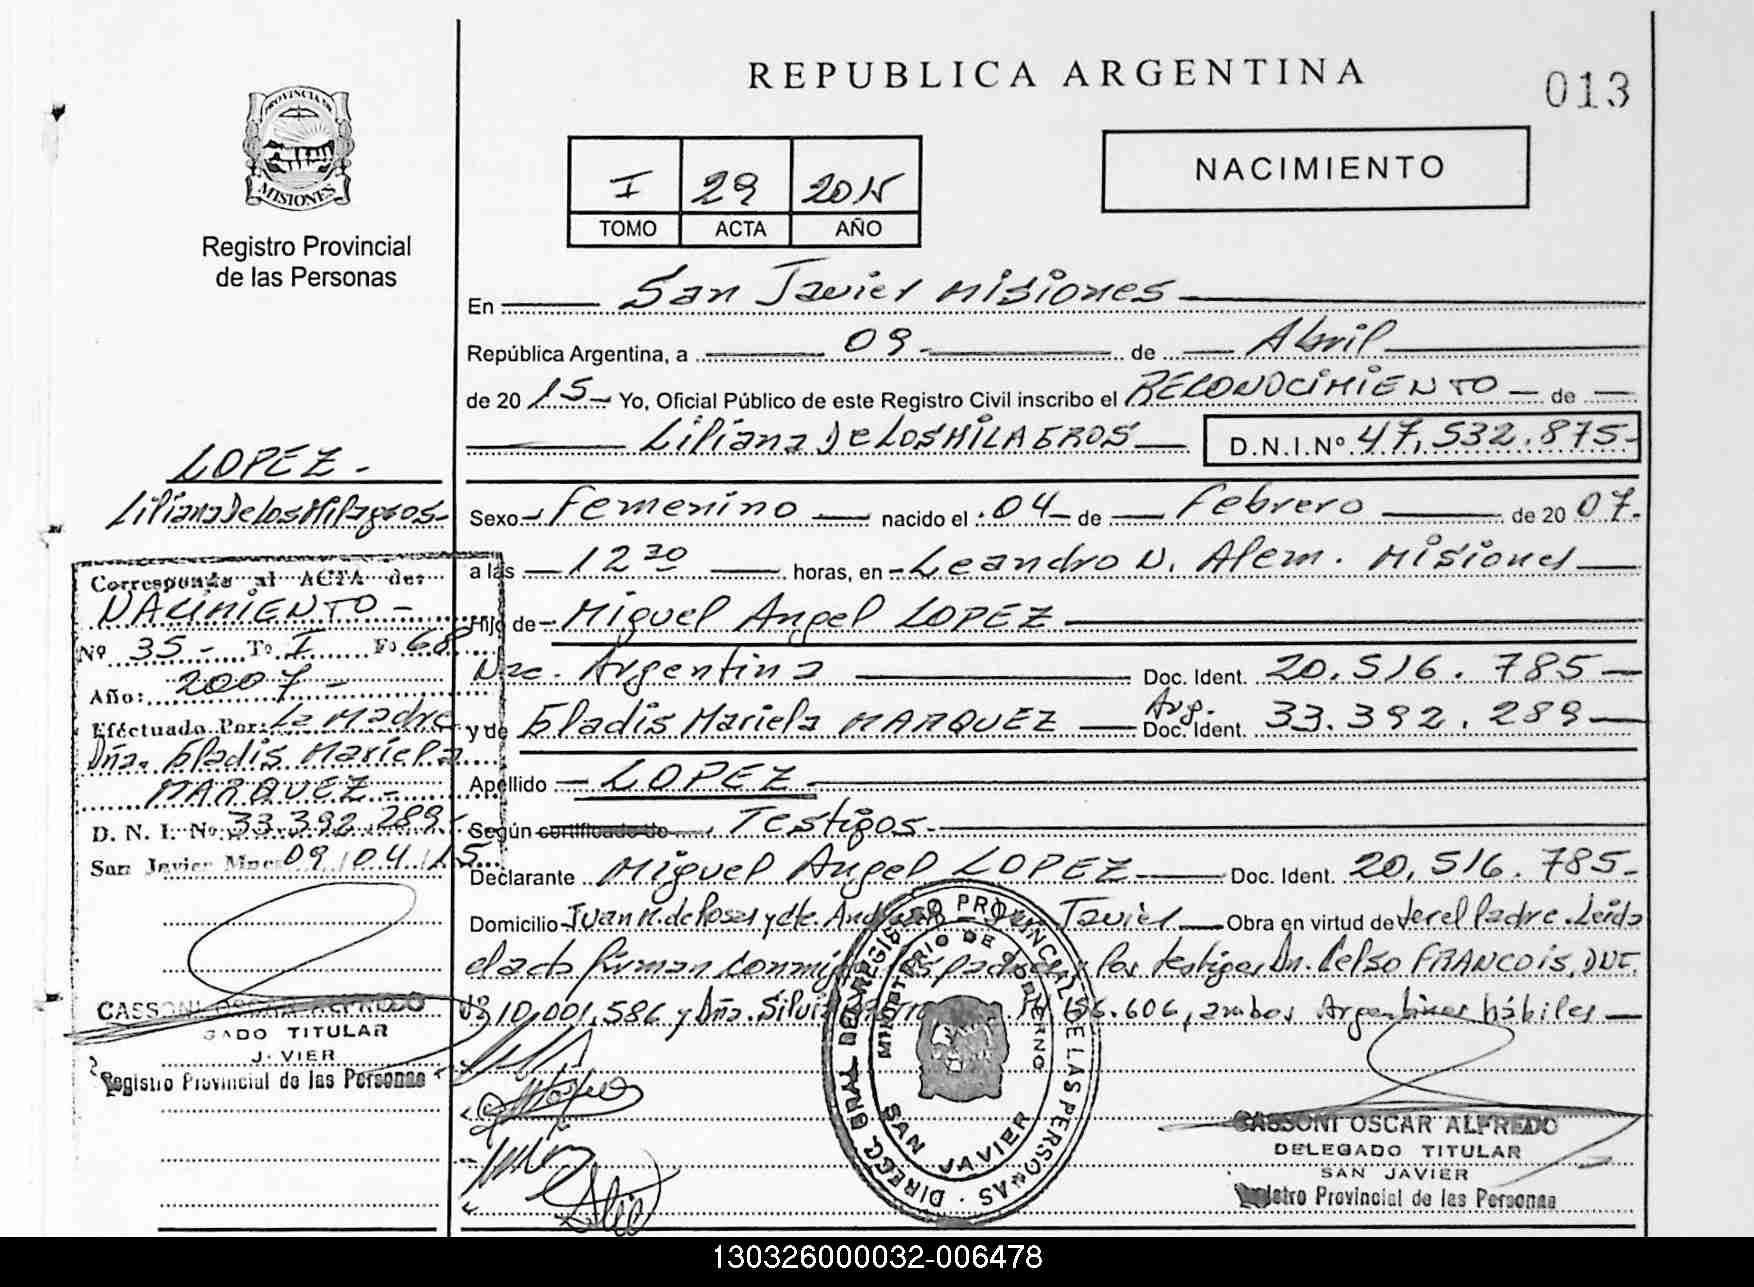 REPUBLICA ARGENTINA
013
PROVINCIA DE
MISIONES
Registro Provincial
de las Personas
I 29 2015
TOMO ACTA AÑO
NACIMIENTO
En San Javier Misiones
República Argentina, a 09 de Abril
de 20 15 Yo, Oficial Público de este Registro Civil inscribo el RECONOCIMIENTO de
Liliana De LOS MILAGROS D.N.I.Nº 47.532.875
LOPEZ.
Liliana De Los Milagros
Sexo Femenino nacido el 04 de Febrero de 20 07.
a las 12 30 horas, en Leandro N. Alem. Misiones
Hijo de Miguel Angel LOPEZ
Nac. Argentina Doc. Ident. 20.516.785
y de Gladis Mariela MARQUEZ Arg. Doc. Ident. 33.392.289
Apellido LOPEZ
Según certificado de Testigos
Declarante Miguel Angel LOPEZ Doc. Ident. 20.516.785
Domicilio Juan M. de Rosas y cte. Javier Obra en virtud de ser el Padre. Leida
el acta firman conmigo los padres y los testigos Dn. Celso FRANCOIS, DNI.
Nº 10.001.586 y Dña. Silvia 56.606, ambos Argentinos hábiles
Corresponde al ACTA de:
NACIMIENTO
Nº 35 Tº I Fº 68
Año: 2007
Efectuado Por: La Madre
Dña. Gladis Mariela
MARQUEZ
D. N. I. Nº 33.392.289
San Javier Mnes 09/04/15
CASSONI OSCAR ALFREDO
GADO TITULAR
J. VIER
Registro Provincial de las Personas
DIREC. GRAL DEL REGISTRO PROVINCIAL DE LAS PERSONAS
MINISTERIO DE GOBIERNO
SAN JAVIER
CASSONI OSCAR ALFREDO
DELEGADO TITULAR
SAN JAVIER
Registro Provincial de las Personas
130326000032-006478